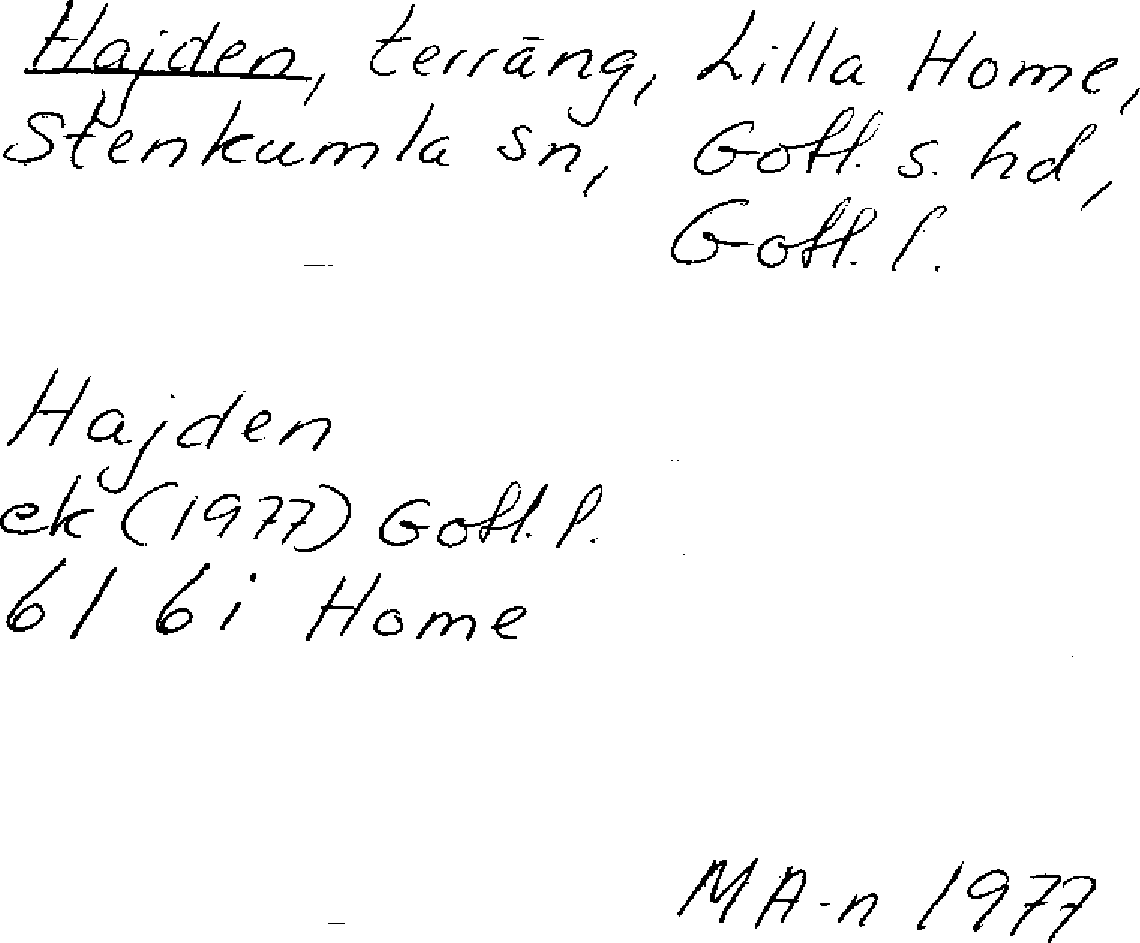 Hajden, terräng, Lilla Home,
Stenkumla sn, Gotl. s. hd,
Gotl. l.
Hajden
ek (1977) Gotl. l.
6I 6i Home
MA-n 1977